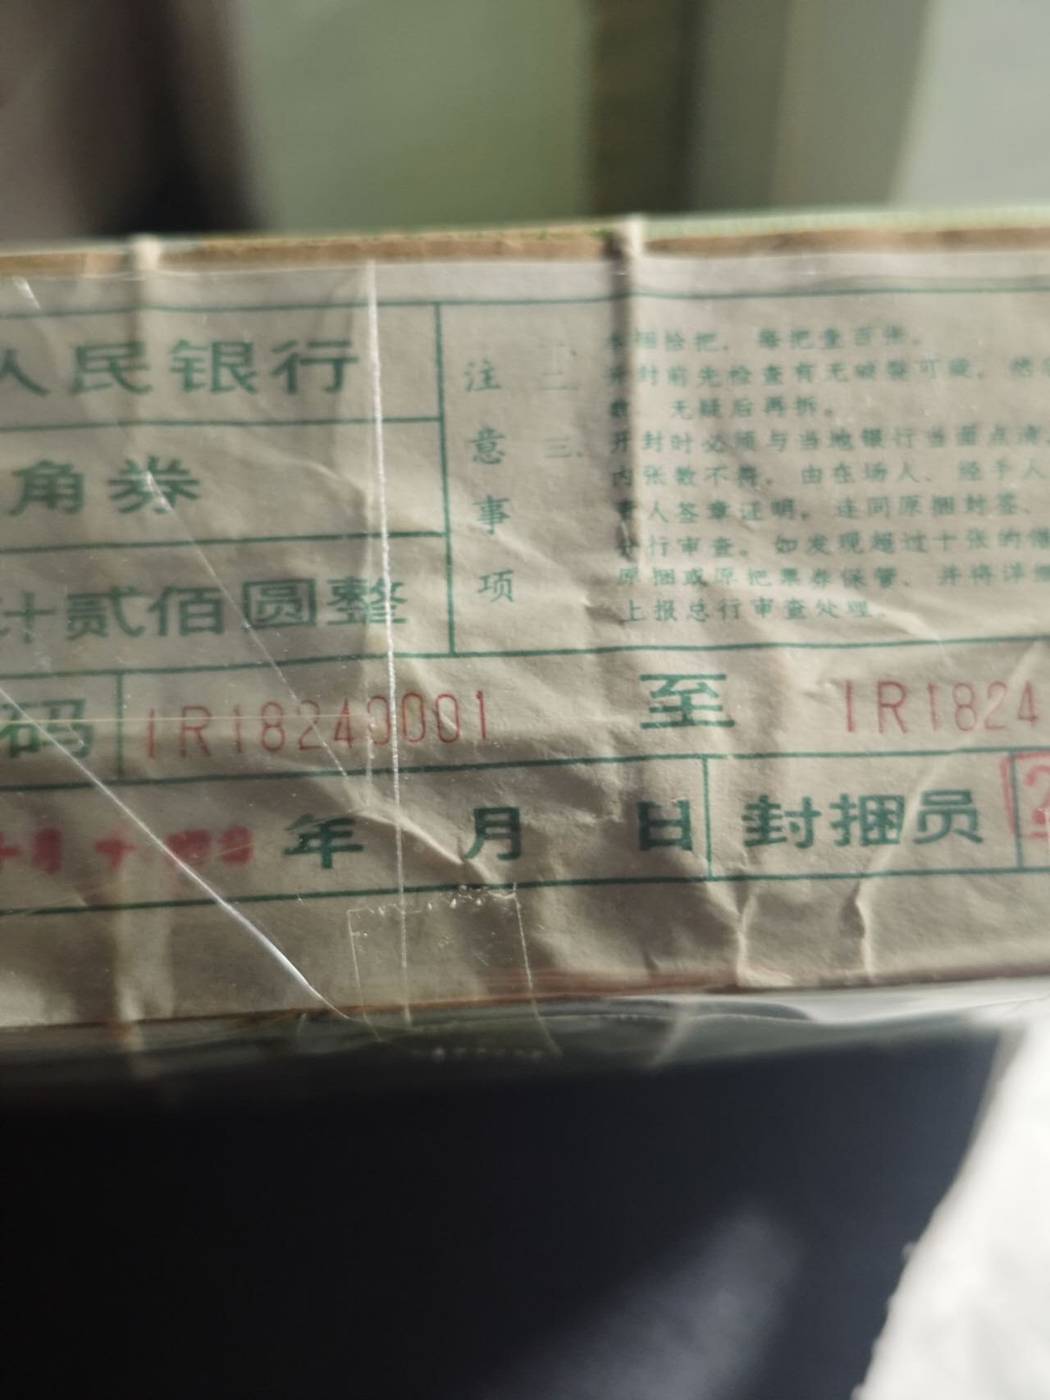 人民银行
角券
计贰佰圆整
注意事项
一、 捆拾把，每把壹百张。
二、 封前先检查有无破裂可疑，然
无疑后再拆。
三、开封时必须与当地银行当面点清，
内张数不符，由在场人、经手人
人签章证明，连同原捆封签、
行审查。如发现超过十张的
原捆或原把票券保管、并将详
上报总行审查处理。
码 IR18240001 至 IR1824
年 月 日 封捆员